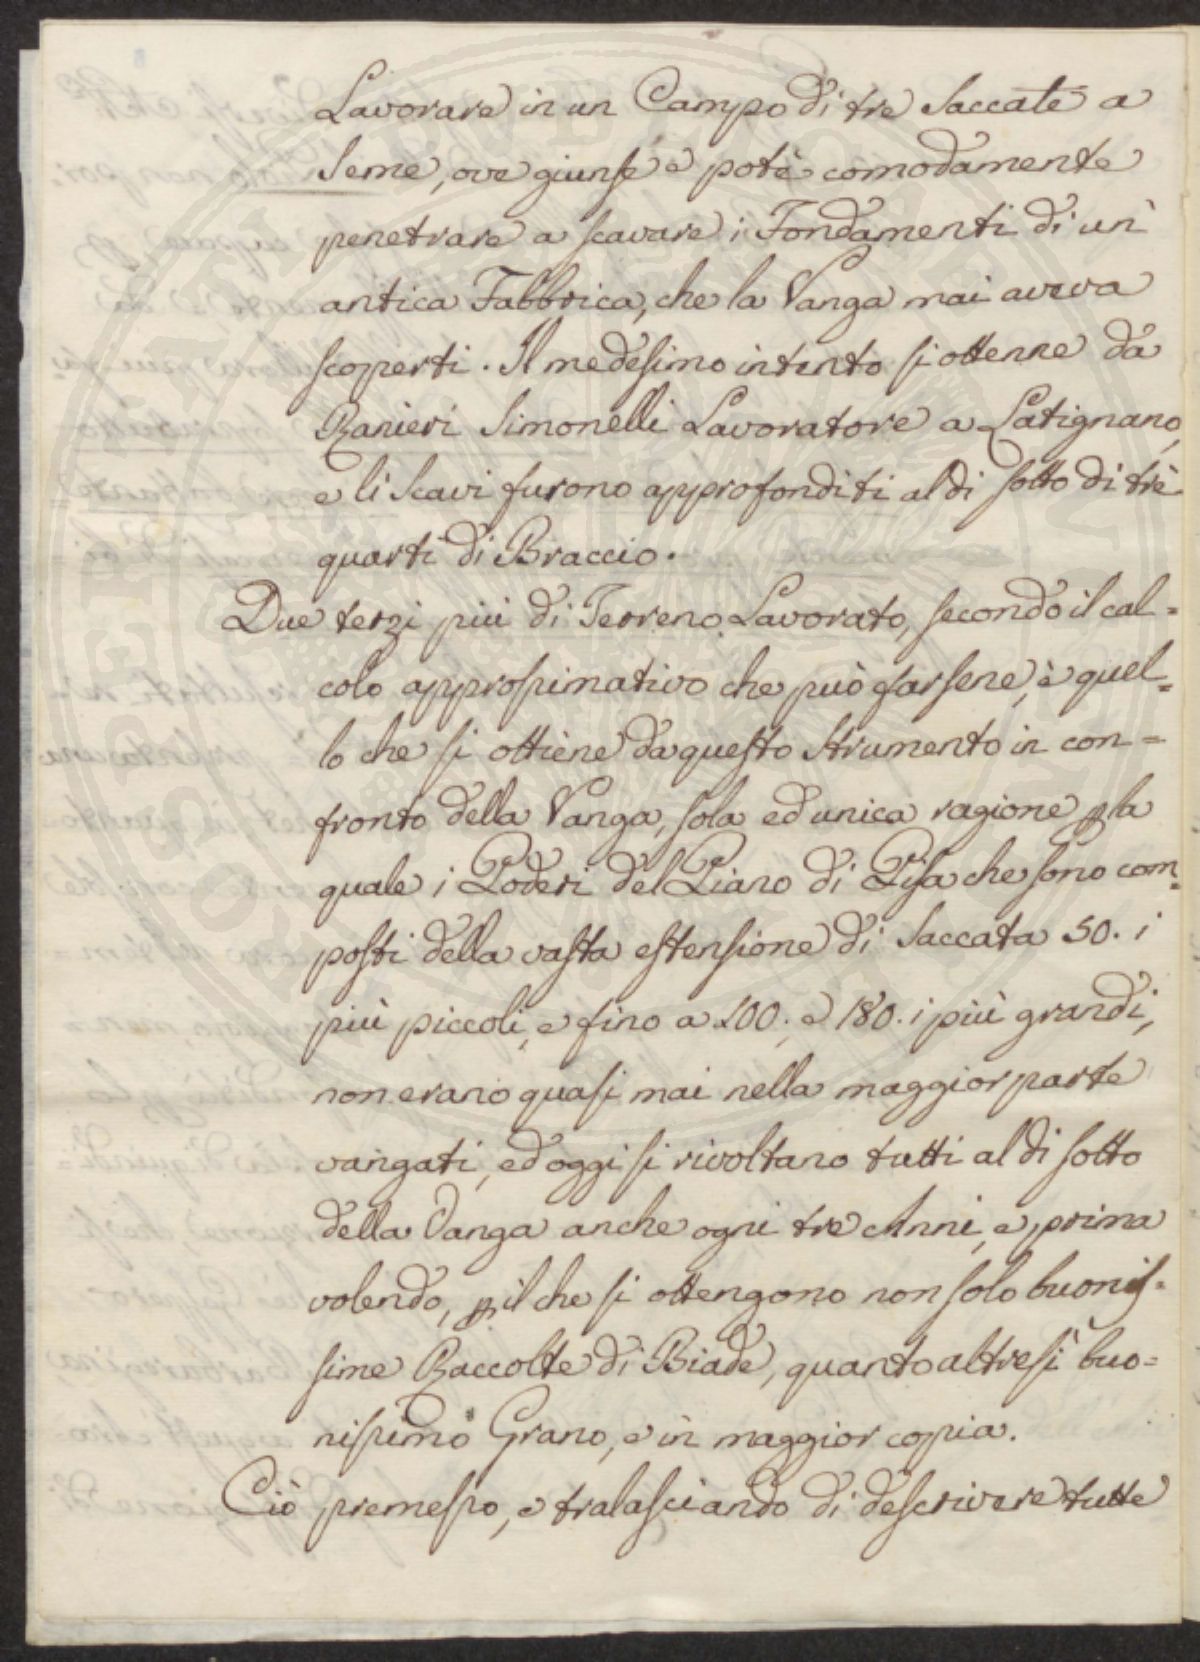 Lavorare in un Campo di tre Saccate a
Seme, ove giunse e potè comodamente
penetrare a scavare i Fondamenti di un'
antica Fabbrica, che la Vanga mai aveva
scoperti. Il medesimo intento si ottenne da
Ranieri Simonelli Lavoratore a Latignano,
e li Scavi furono approfonditi al di sotto di trè
quarti di Braccio.
Due terzi più di Terreno Lavorato, secondo il cal=
colo approssimativo che può farsene, è quel=
lo che si ottiene da questo Strumento in con=
fronto della Vanga, sola ed unica ragione p la
quale i Poderi del Piano di Pisa che sono com=
posti della vasta estensione di Saccata 50. i
più piccoli, e fino a 100. e 180. i più grandi,
non erano quasi mai nella maggior parte
vangati, ed oggi si rivoltano tutti al di sotto
della Vanga anche ogni tre Anni, e prima
volendo, p il che si ottengono non solo buonis=
sime Raccolte di Biade, quanto altresì buo=
nissimo Grano, e in maggior copia.
Ciò premesso, e tralasciando di descrivere tutte